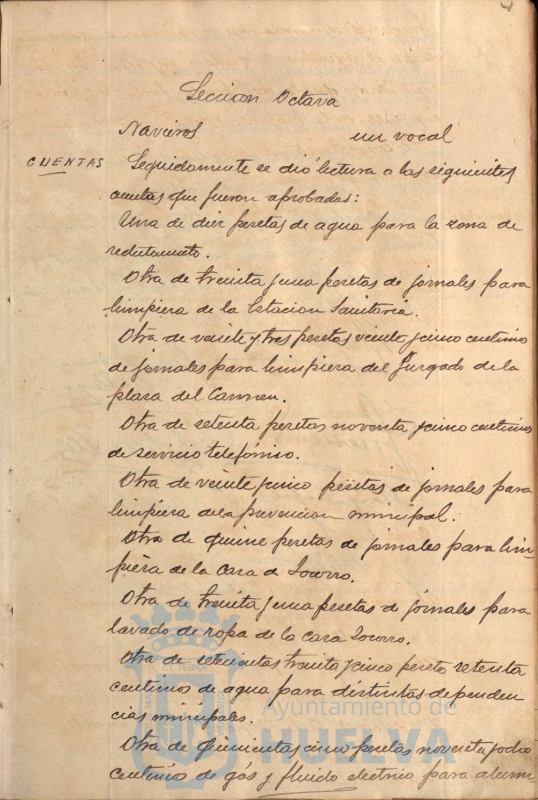 4
Seccion Octava
Navieros un vocal
CUENTAS
Seguidamente se dió lectura a las siguientes
cuentas que fueron aprobadas:
Una de diez pesetas de agua para la zona de
reclutamiento.
Otra de treinta y una pesetas de jornales para
limpieza de la Estacion Sanitaria.
Otra de veinte y tres pesetas veinte y cinco centimos
de jornales para limpieza del Juzgado de la
plaza del Carmen.
Otra de setenta pesetas noventa y cinco centimos
de servicio telefónico.
Otra de veinte y cinco pesetas de jornales para
limpieza de la prevencion municipal.
Otra de quince pesetas de jornales para lim-
pieza de la Casa de Socorro.
Otra de treinta y una pesetas de jornales para
lavado de ropa de la casa Socorro.
Otra de setecientas treinta y cinco pesetas setenta
centimos de agua para distintas dependen-
cias municipales.
Otra de quinientas cinco pesetas noventa y ocho
centimos de gás y fluido electrico para alum-
Ayuntamiento de
HUELVA